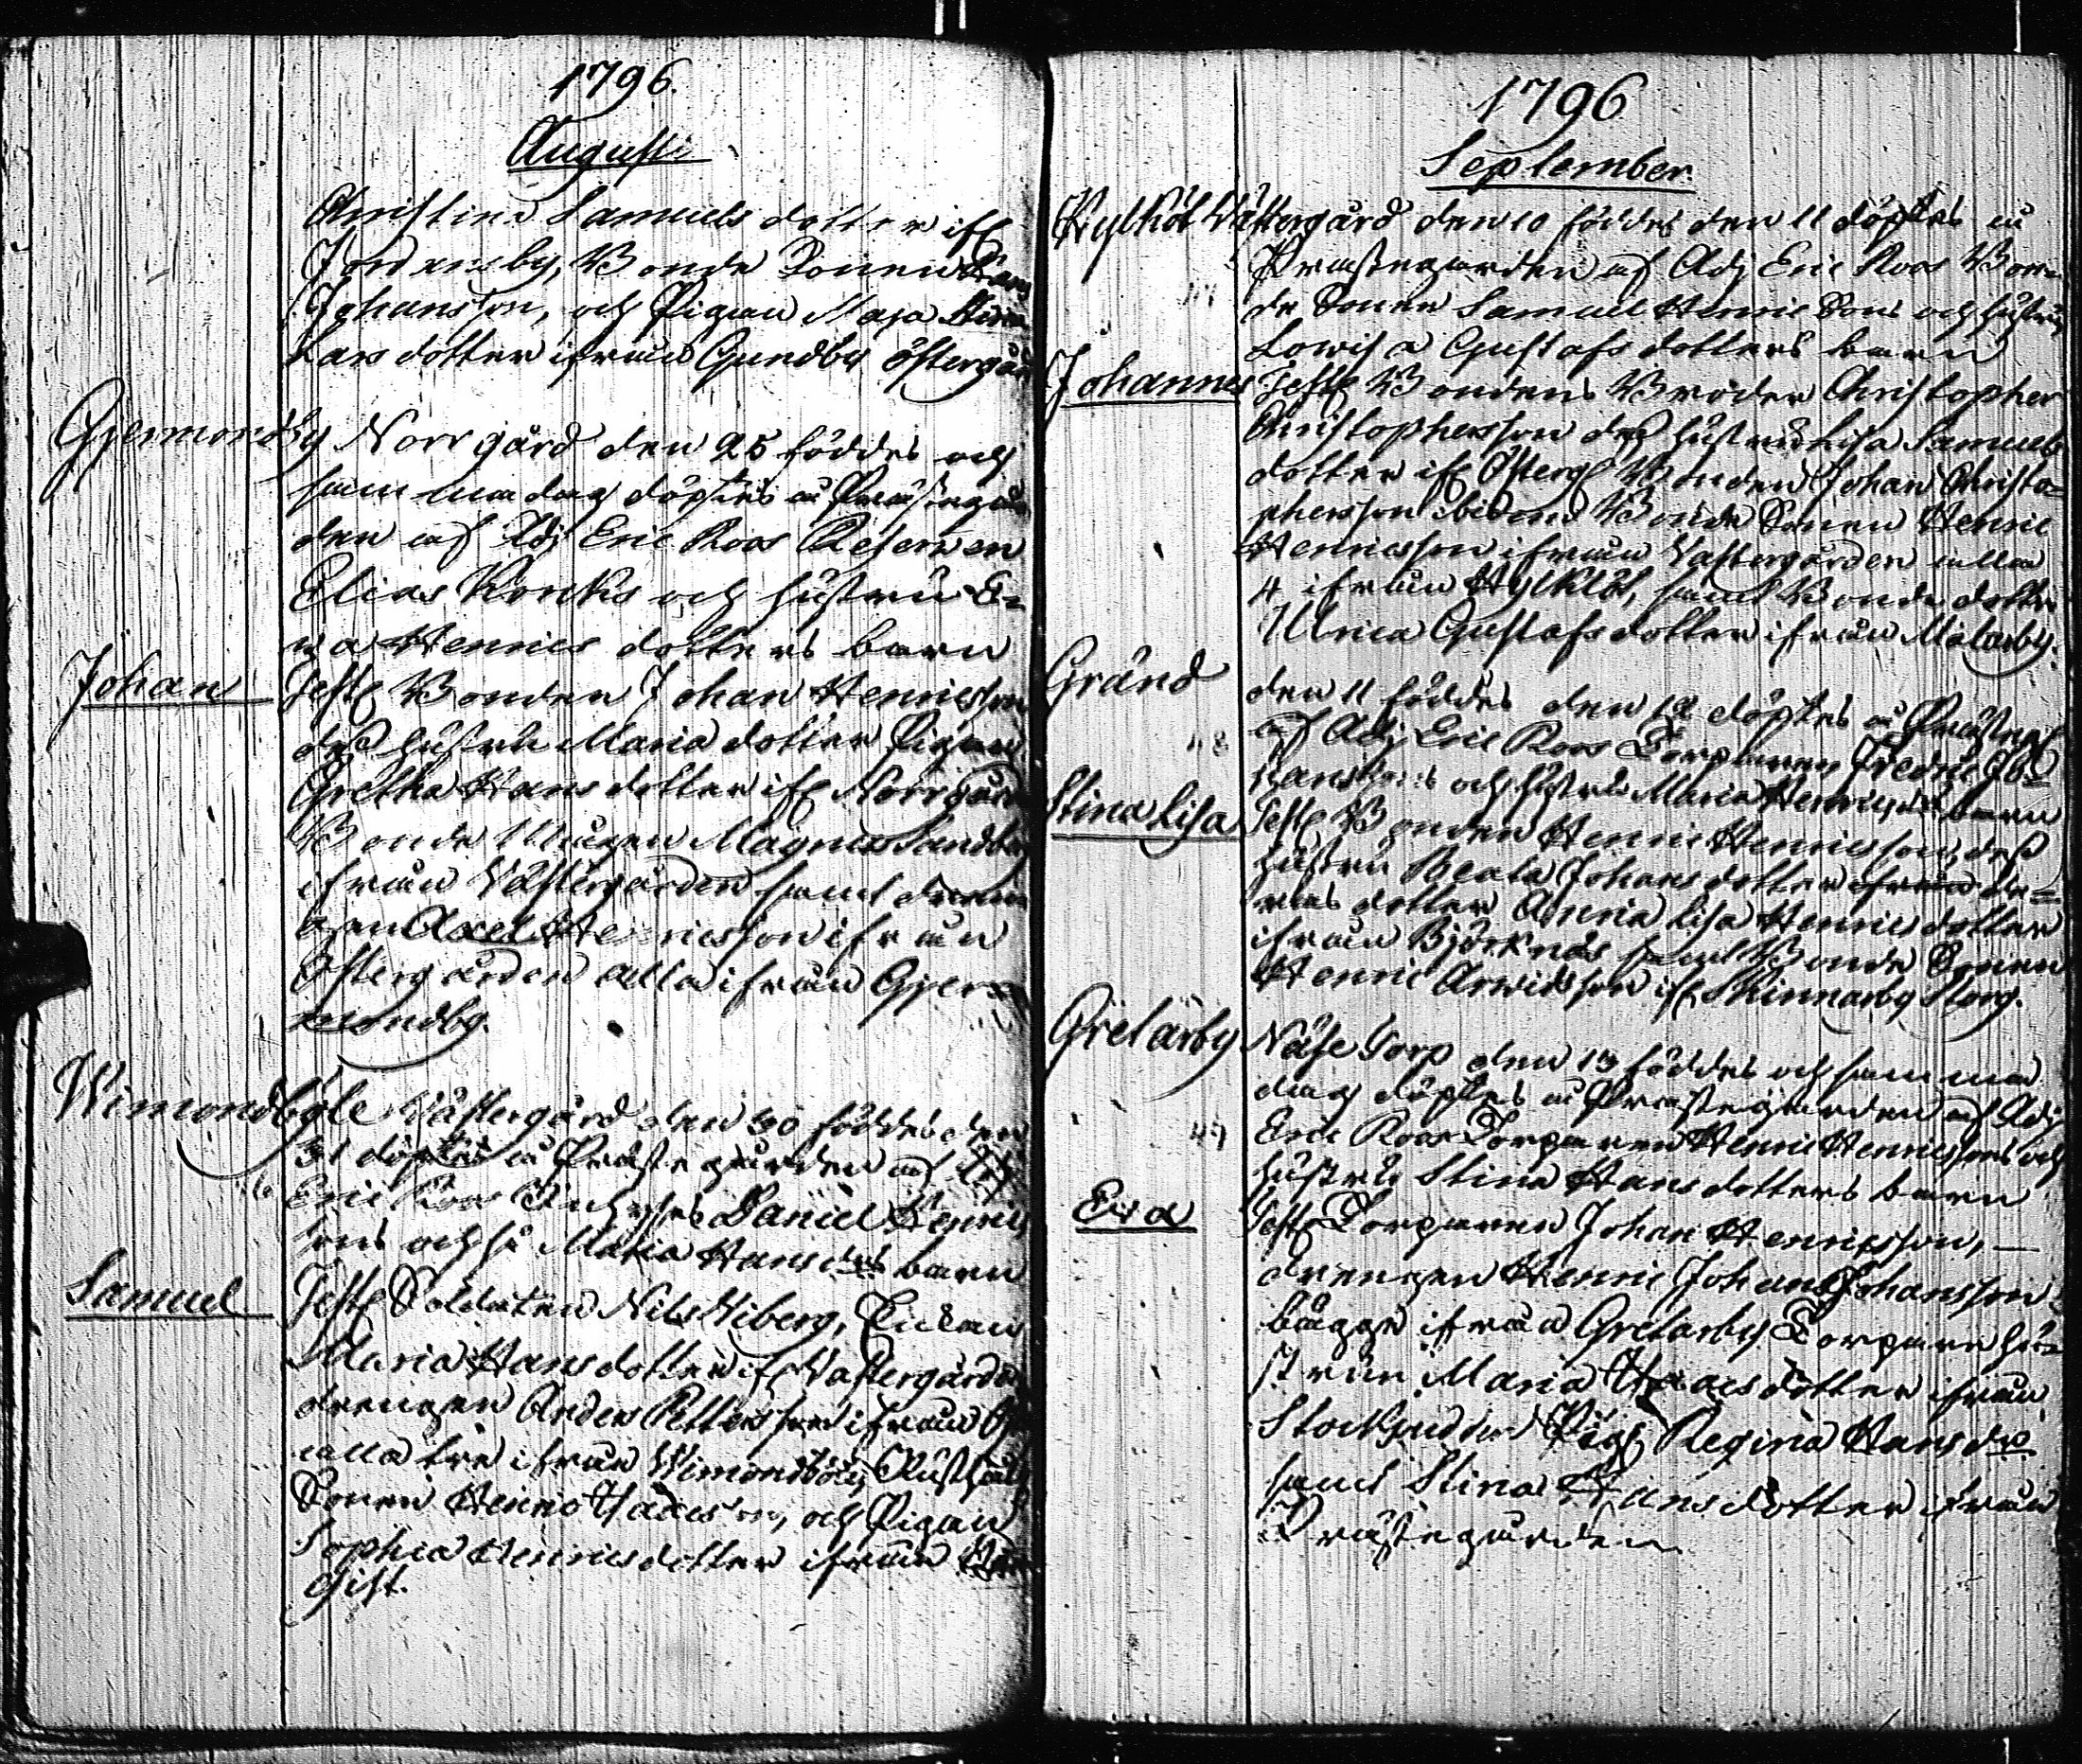 1796.
Augusti
Christina Samuels dotter if
Jordansby, Bonde Sonen
Johansson, och Pigan Maja Stina
Lars dotter ifrån Gundby Östergård
Gjermondby Norrgård den 25 föddes och
samma dag döptes i Prästegår
den af Adj Eric Roos Reserven
Elias Kronks och hustru E-
va Henrics dotters barn
Johan
Test Bonden Johan Henricsson
dess hustru Maria dotter Pigan
Gretha Hans dotter if Norrgård
Bonde Mågen Magnus Sandberg
ifrån Västergården samt dren
gen Axel Henricsson ifrån
Östergården alla ifrån Gjer
mondby.
Wimondböle Västergård den 30 föddes den
31 döptes i Prästegården af Adj
Eric Roos Daniel Henrics
sons och h: Maria Hans barn
Samuel
Test Soldaten Nils Wiberg, Enkan
Maria Hansdotter if Västergården
drengen Anders Pettersson ifrån
alla tre ifrån Wimondböle, Rusthåll
Sonen Henric Isacsson, och Pigan
Sophia Henrics dotter ifrån
Gist.
1796
September
Kylköl Västergård den 10 föddes den 11 döptes i
Prästegården af Adj Eric Roos Bon
de Sonen Samuel Henric Sons och hustru
Lowisa Gustafs dotters barn
Johannes
Test Bondens Broder Christopher
Christophersson dess hustru Lisa Samuels
dotter if Österg Bonden Johan Christo-
phersson ibidem Bonde Sonen Henric
Henricsson ifrån Västergården alla
4 ifrån Kylköl, samt Bonde dotter
Ulrica Gustafs dotter ifrån Malarby.
Gränd
den 11 föddes den 12 döptes i Prästeg
48
af Adj Eric Roos Torparen Fredric Jo-
hanssons och hustru Maria Henrics barn
Stina Lisa
Test Bonden Henric Henricsson, dess
hustru Beata Johans dotter de-
ras dotter Anna Lisa Henrics dotter
ifrån Björknäs samt Bonde Sonen
Henric Arwidsson if Skinnarby Storg.
Gretarby Näse Torp den 13 föddes och samma
dag döptes i Prästegården af Adj
49
Eric Roos Torparen Henric Henricssons och
hustru Stina Hans dotters barn
Eva
Test Torparen Johan Henricsson, —
drengen Henric Johan Johansson
bägge ifrån Gretarby Torpare hu-
strun Maria Isacs dotter ifrån
Pig Regina Hans dr
samt Stina Hans dotter ifrån
Prästegården